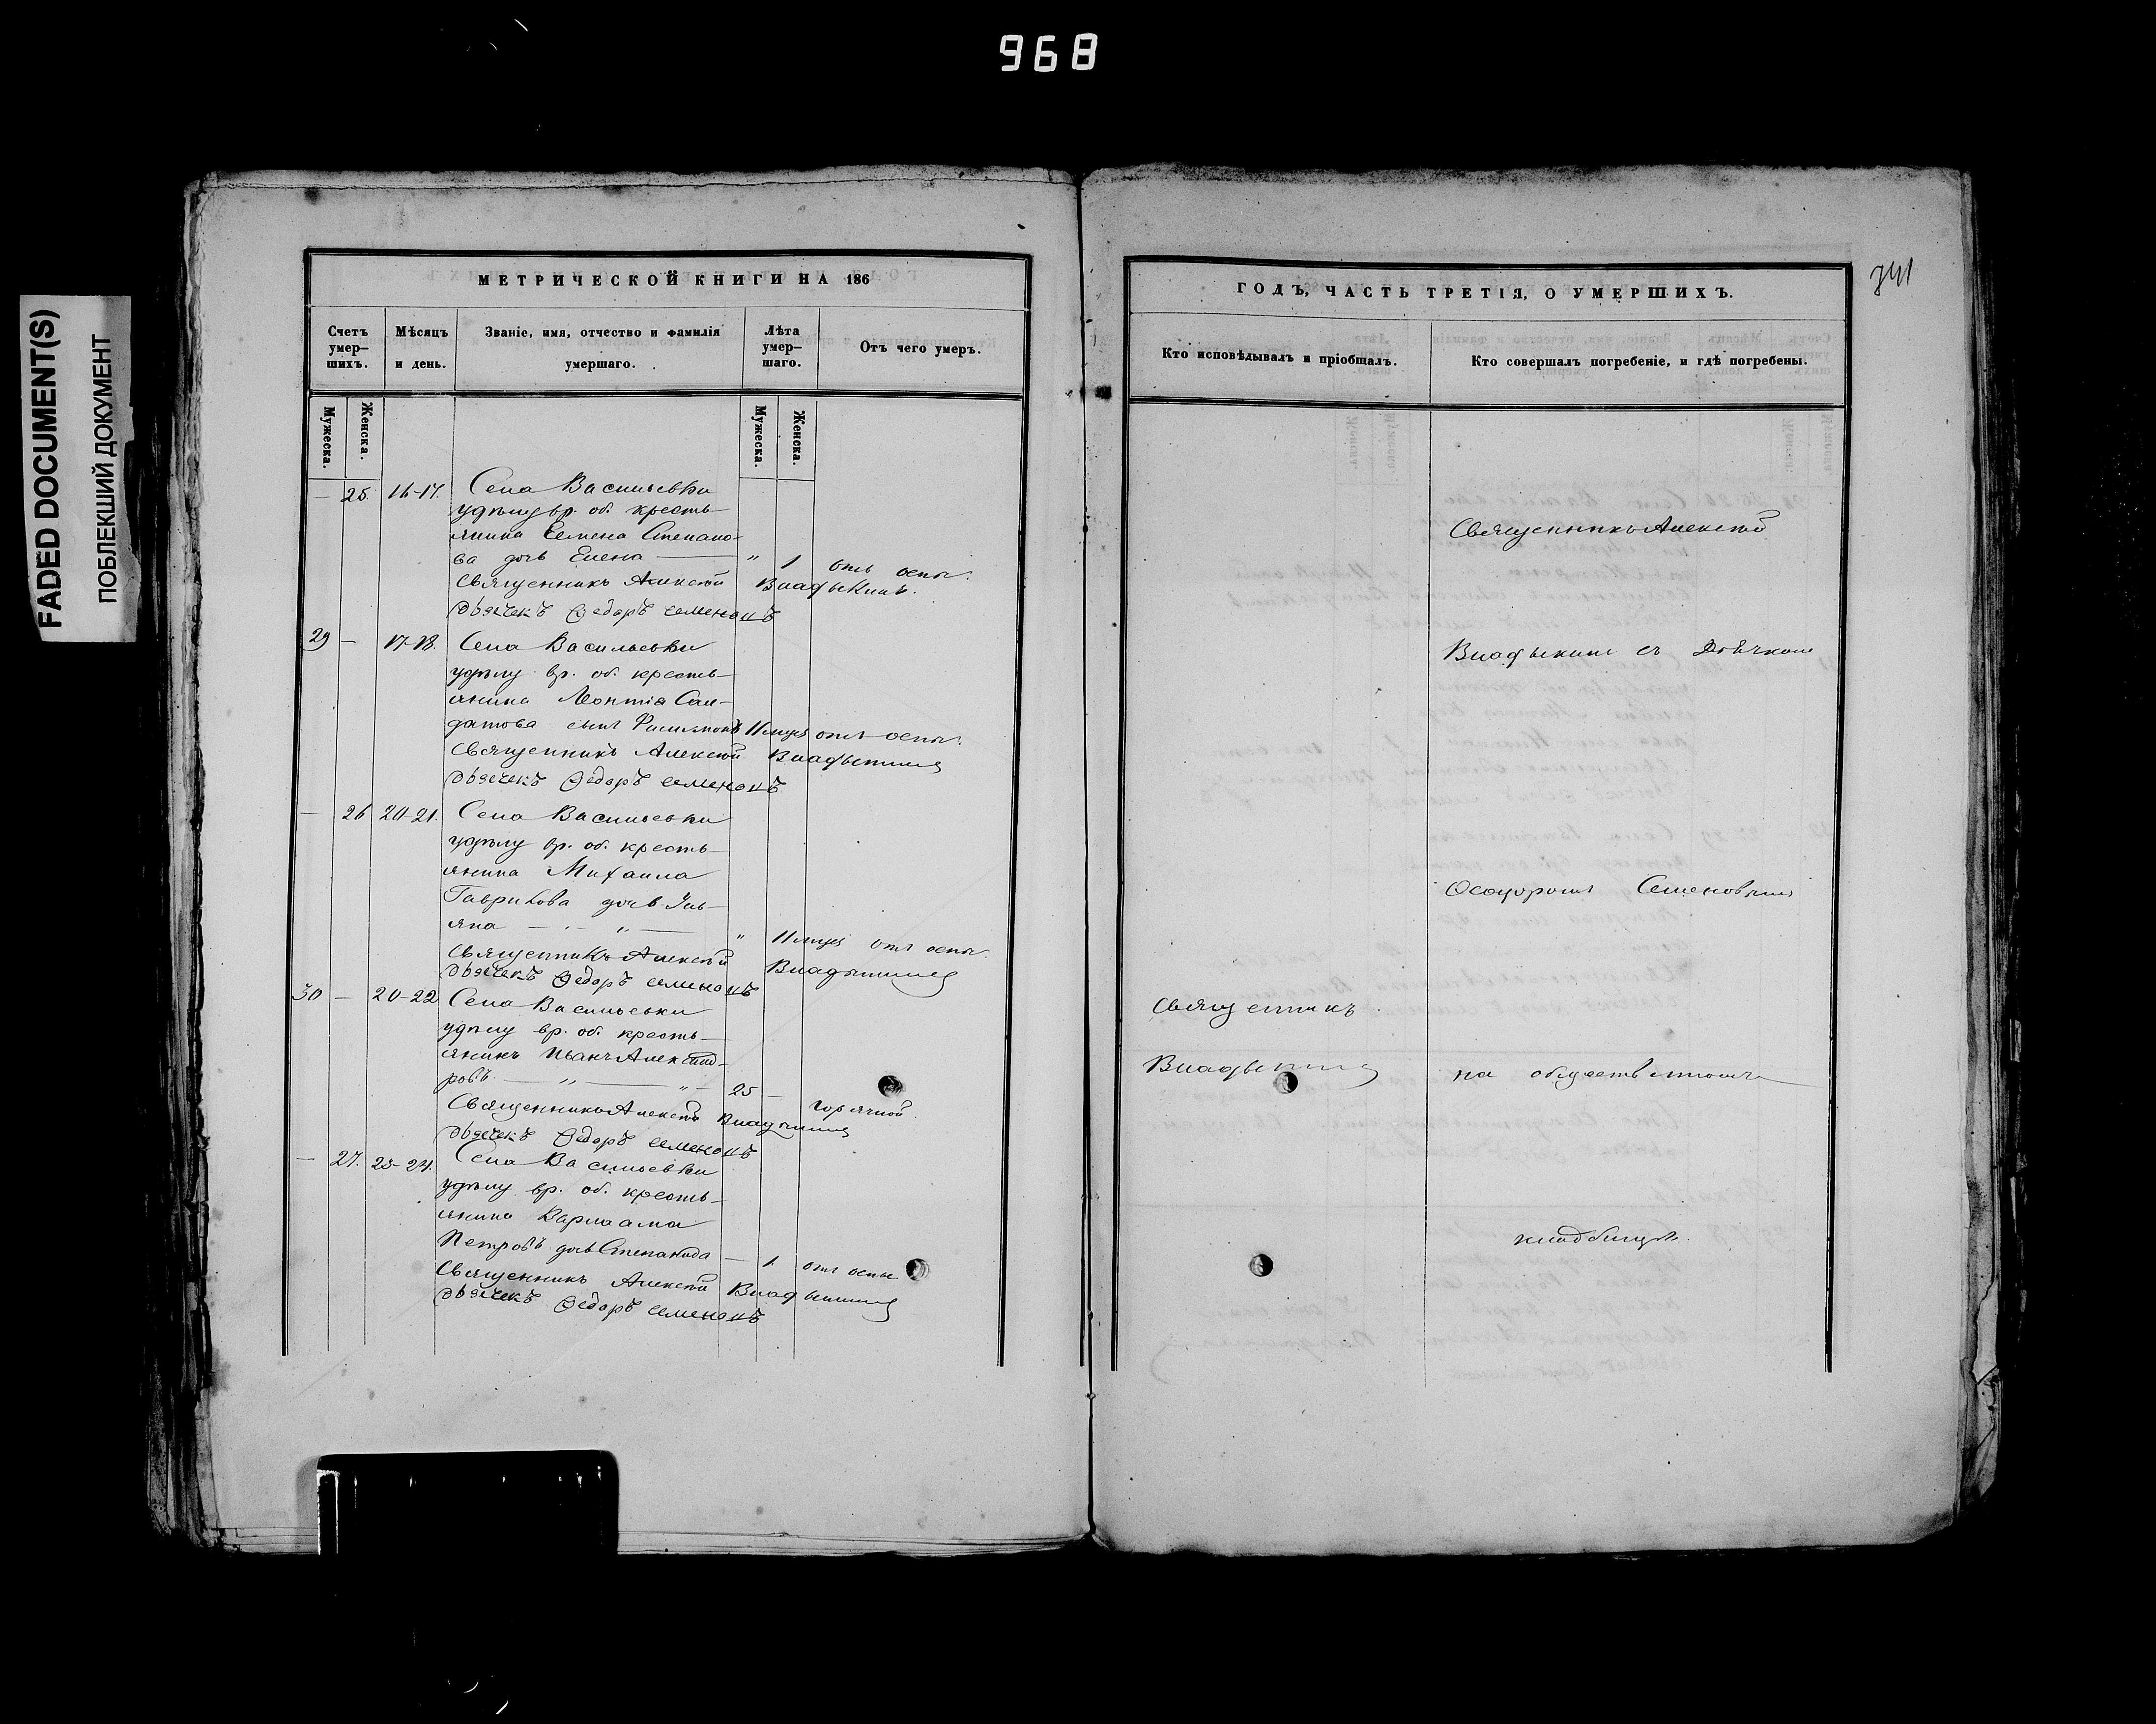 968
FADED DOCUMENT(S)
ПОБЛЕКШИЙ ДОКУМЕНТ
МЕТРИЧЕСКОЙ КНИГИ НА 186
Счетъ умер-шихъ.
Мѣсяцъ и день.
Званіе, имя, отчество и фамилія умершаго.
Лѣта умер-шаго.
Отъ чего умеръ.
Мужеска.
Женска.
Мужеска.
Женска.
— 25. 16-17. Села Васильевки
удѣлу вр. об. кресть-
янина Семена Степано-
ва дочь Елена — " 1 отъ оспы.
Священникъ Алексѣй Владыкинъ.
Дьячекъ Ѳедоръ Семеновъ
29 — 17-18. Села Васильевки
удѣлу вр. об. кресть-
янина Леонтія Сал-
датова сынъ Филимонъ 11 мцъ отъ оспы.
Священникъ Алексѣй Владыкинъ
Дьячекъ Ѳедоръ Семеновъ
— 26 20-21. Села Васильевки
удѣлу вр. об. кресть-
янина Михаила
Гаврилова дочь Уль-
яна — " — " 11 мцъ отъ оспы.
Священникъ Алексѣй Владыкинъ
Дьячекъ Ѳедоръ Семеновъ
30 — 20-22 Села Васильевки
удѣлу вр. об. кресть-
янинъ Иванъ Александ-
ровъ. — " — " — 25 — горячкой.
Священникъ Алексѣй Владыкинъ
Дьячекъ Ѳедоръ Семеновъ
— 27. 23-24. Села Васильевки
удѣлу вр. об. кресть-
янина Варлаама
Петровъ дочь Степанида — 1 отъ оспы
Священникъ Алексѣй Владыкинъ
Дьячекъ Ѳедоръ Семеновъ
ГОДЪ, ЧАСТЬ ТРЕТІЯ, О УМЕРШИХЪ.
341
Кто исповѣдывалъ и пріобщалъ.
Кто совершалъ погребеніе, и гдѣ погребены.
Священникъ Алексѣй
Владыкинъ съ Дьячкомъ
Ѳеодоромъ Семеновымъ
Священникъ
Владыкинъ
на общественномъ
кладбищѣ.